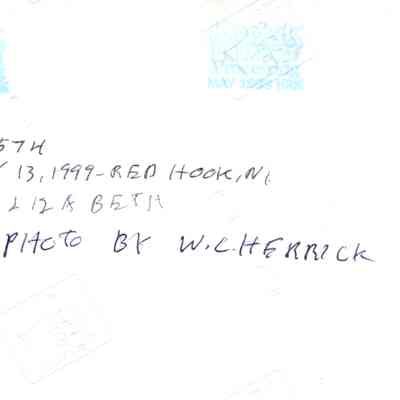 MAY 1999 HRK
57H
13, 1999-RED HOOK, N
LIZA BETH
PHOTO BY W.C.HERRICK